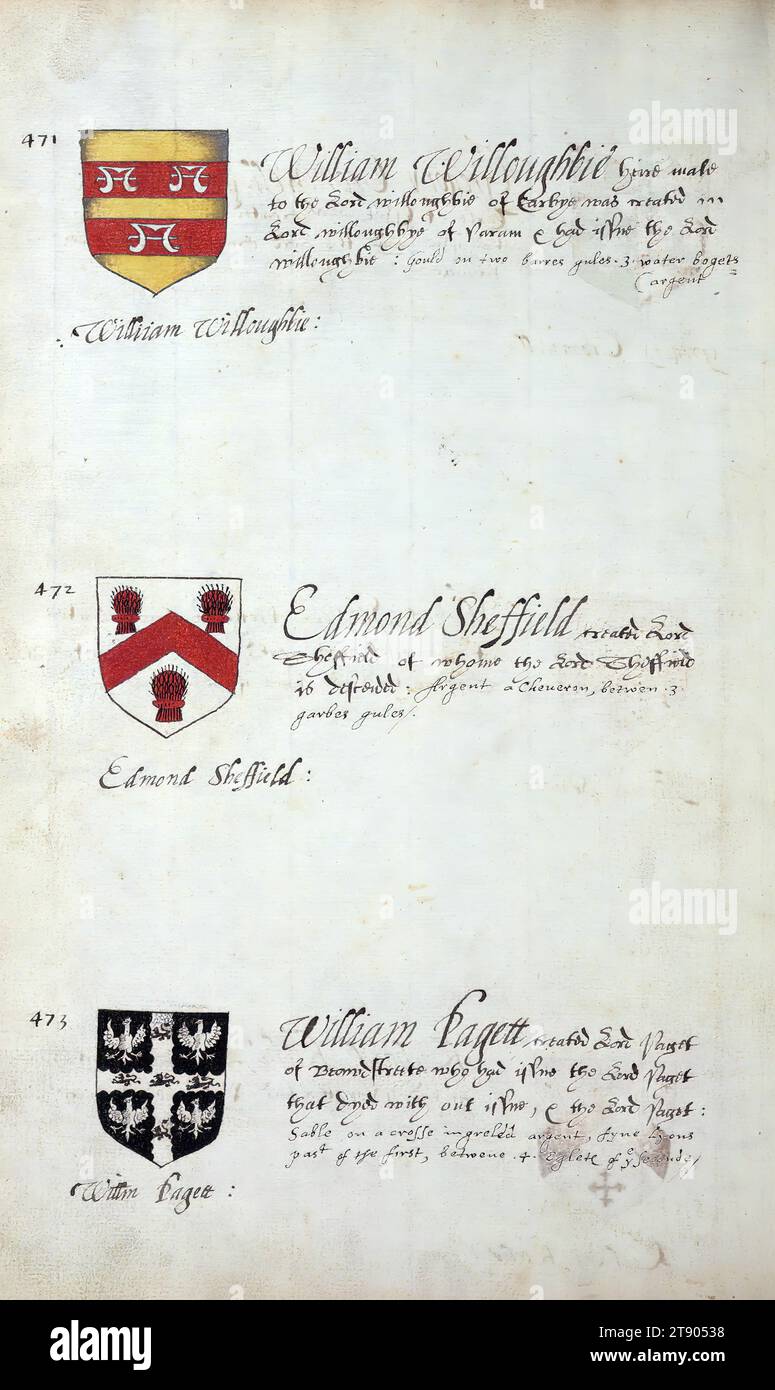 471
William Willoughbie heire male
to the Lord willoughbie of Earbye was created
Lord willoughbye of Param & had issue the Lord
willoughbie : Gould on two barres gules . 3 . water bogets
argent
William Willoughbie :
472
Edmond Sheffield created Lord
Sheffield of whome the Lord Sheffield
is desceided : Argent a Cheveron, betwen . 3 .
garbes gules .
Edmond Sheffield :
473
William Pagett created Lord Paget
of who had issue the Lord Paget
that dyed with out issue, & the Lord Paget :
Sable on a crosse ingreled argent, fyve Lyons
past of the first, betwene . 4 . of ye seconde
Willm Pagett :
alamy
alamy
alamy
alamy
Image ID: 2T90538
www.alamy.com